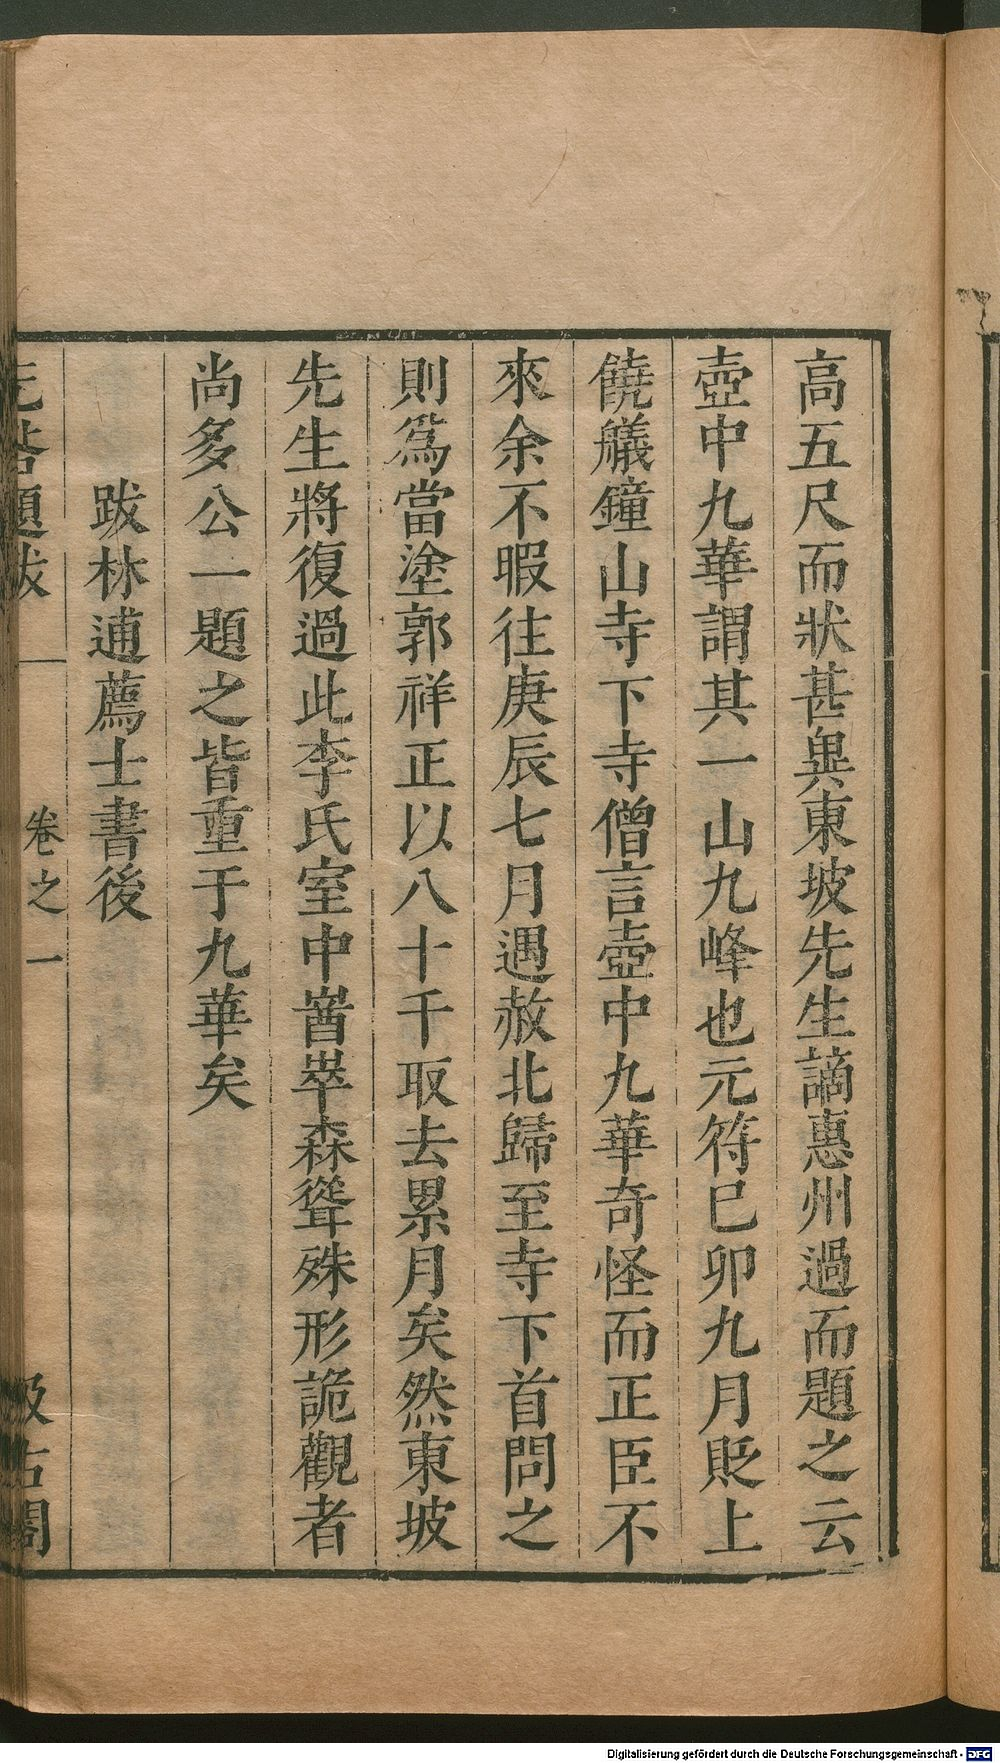 高五尺而狀甚異東坡先生謫惠州過而題之云
壺中九華謂其一山九峰也元符巳卯九月貶上
饒艤鐘山寺下寺僧言壺中九華奇怪而正臣不
來余不暇往庚辰七月遇赦北歸至寺下首問之
則爲當塗郭祥正以八十千取去累月矣然東坡
先生將復過此李氏室中崷崒森聳殊形詭觀者
尚多公一題之皆重于九華矣
跋林逋薦士書後
无咎題跋
卷之一
汲古閣
Digitalisierung gefördert durch die Deutsche Forschungsgemeinschaft - DFG